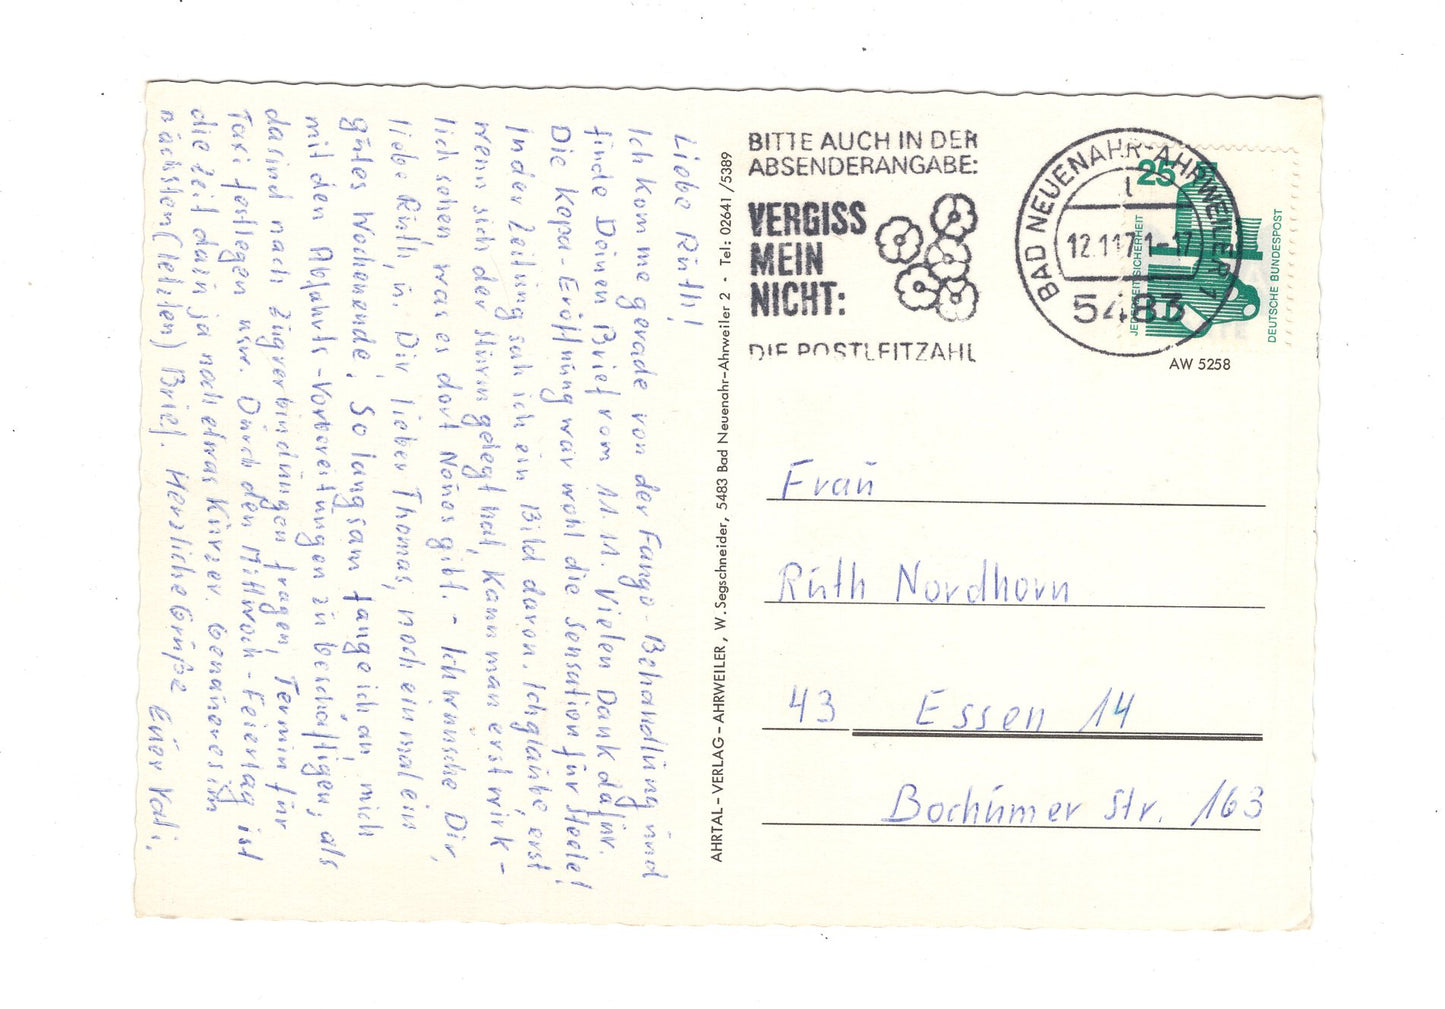 Liebe Rúth!
Ich komme gerade von der Fango-Behandlúng únd
finde Deinen Brief vom 11.11. Vielen Dank dafür.
Die Kepa-Eröffnúng war wohl die Sensation für Steele!
In der Zeitúng sah ich ein Bild davon. Ich glaúbe, erst
wenn sich der Stúrm gelegt hat, kann man erst wirk-
lich sehen, was es dort Neúes gibt. - Ich wünsche Dir,
liebe Rúth, ú. Dir, lieber Thomas, noch einmal ein
gútes Wochenende. So langsam fange ich an, mich
mit den Abfahrts-Vorbereitúngen zú beschäftigen, als
da sind nach Zúgverbindúngen fragen, Termin für
Taxi festlegen úsw. Dúrch den Mittwoch-Feiertag ist
die Zeit dann ja noch etwas kürzer. Genaúeres im
nächsten (letzten) Brief. Herzliche Grüße
Eúer Vati.
AHRTAL-VERLAG-AHRWEILER, W. Segschneider, 5483 Bad Neuenahr-Ahrweiler 2 - Tel: 02641/5389
BITTE AUCH IN DER
ABSENDERANGABE:
VERGISS
MEIN
NICHT:
DIE POSTLEITZAHL
BAD NEUENAHR-AHRWEILER 1
12.11.71-17
5483
25
JEDERZEIT SICHERHEIT
DEUTSCHE BUNDESPOST
AW 5258
Fraú
Rúth Nordhorn
43 Essen 14
Bochúmer Str. 163